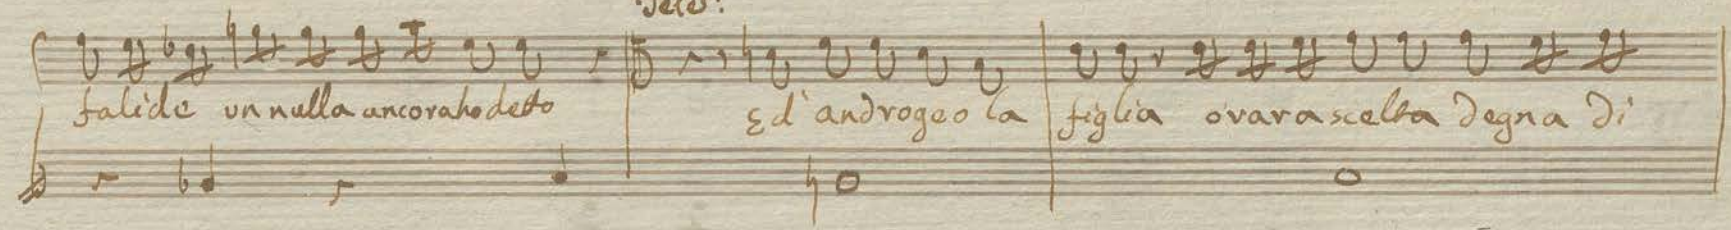 falide un nulla ancora ho detto Ed' androgeo la figlia o rara scelta degna di